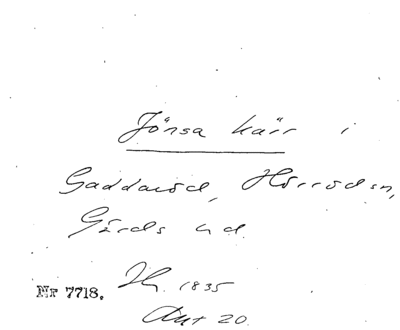 Jönsa kärr i
Gaddaröd, Hörrödsn,
Gärds hd.
Nr 7718.
1835
Akt 20